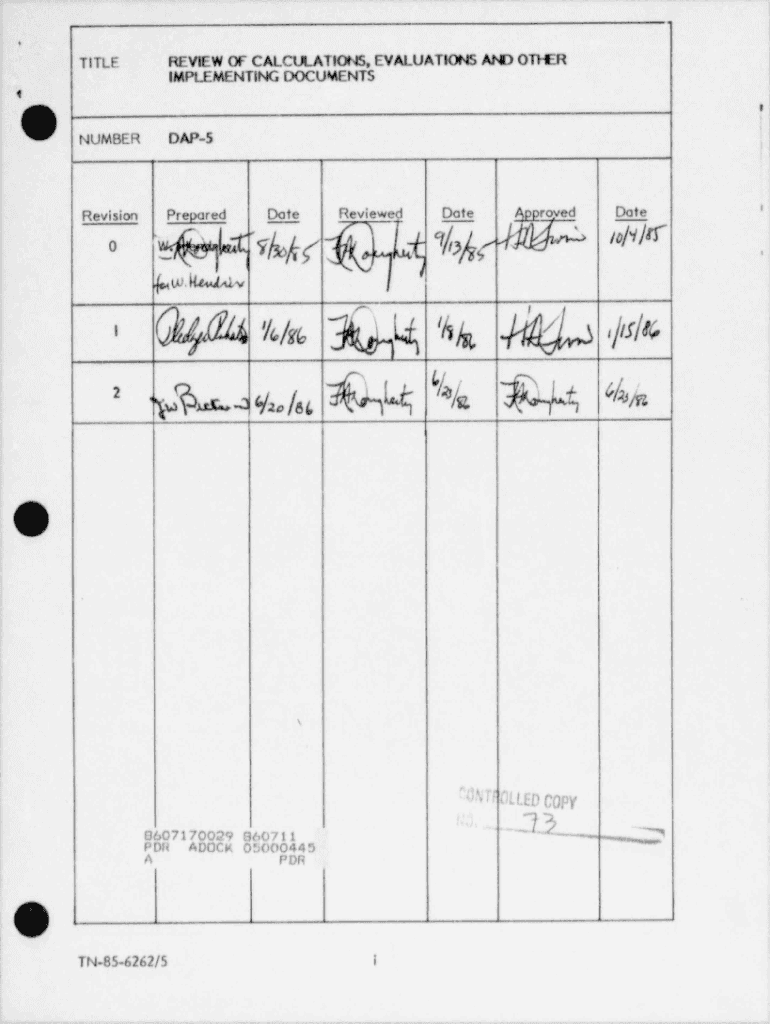 TITLE REVIEW OF CALCULATIONS, EVALUATIONS AND OTHER
IMPLEMENTING DOCUMENTS
NUMBER DAP-5
Revision Prepared Date Reviewed Date Approved Date
0 8/30/85 9/13/85 10/4/85
for W. Hendrix
1 1/6/86 1/8/86 1/15/86
2 6/20/86 6/23/86 6/23/86
CONTROLLED COPY
NO. 73
8607170029 860711
PDR ADOCK 05000445
A PDR
TN-85-6262/5 i